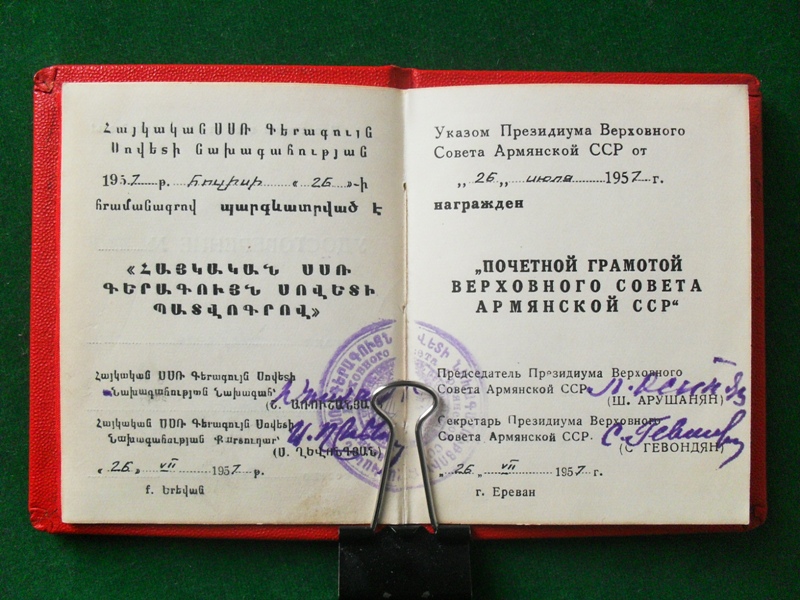 Հայկական ՍՍՌ Գերագույն
Սովետի Նախագահության
1957 թ. հուլիսի « 26 »-ի
հրամանագրով պարգևատրված է
«ՀԱՅԿԱԿԱՆ ՍՍՌ
ԳԵՐԱԳՈՒՅՆ ՍՈՎԵՏԻ
ՊԱՏՎՈԳՐՈՎ»
Հայկական ՍՍՌ Գերագույն Սովետի
Նախագահության Նախագահ
Հայկական ՍՍՌ Գերագույն Սովետի
Նախագահության Քարտուղար
(Ս. ՂԵՎՈՆԴՅԱՆ)
« 26 » VII 1957 թ.
ք. Երևան
Указом Президиума Верховного
Совета Армянской ССР от
„ 26 „ июля 1957 г.
награжден
„ПОЧЕТНОЙ ГРАМОТОЙ
ВЕРХОВНОГО СОВЕТА
АРМЯНСКОЙ ССР“
Председатель Президиума Верховного
Совета Армянской ССР
(Ш. АРУШАНЯН)
Секретарь Президиума Верховного
Совета Армянской ССР
(С ГЕВОНДЯН)
„ 26 „ VII 1957 г.
г. Ереван